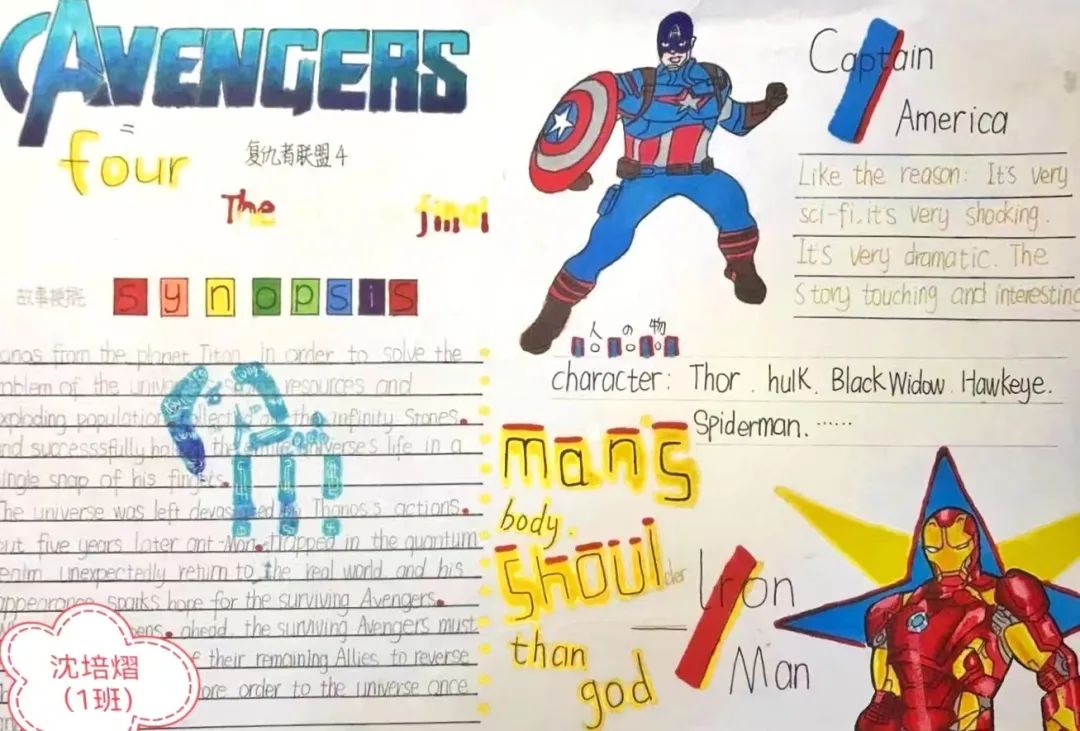 AVENGERS
four
复仇者联盟4
The final
故事梗概
synopsis
from the planet Titan, in order to solve the
of the resources and
population the infinity Stones.
successsfully the universe's life in a
snap of his fingers.
The universe was left devastated by Thanos,s actions.
five years later ant-Man. trapped in the quantum
unexpectedly return to the real world, and his
appearance sparks hope for the surviving Avengers.
ahead, the surviving Avengers must
their remaining Allies to reverse
order to the universe once
沈培熠
(1班)
Captain
America
Like the reason: It's very
sci-fi, it's very shocking.
It's very dramatic. The
Story touching and interesting
人の物
character: Thor. hulk. Black Widow. Hawkeye.
Spiderman. ······
man's
body.
shoulder
than
god
Iron
Man